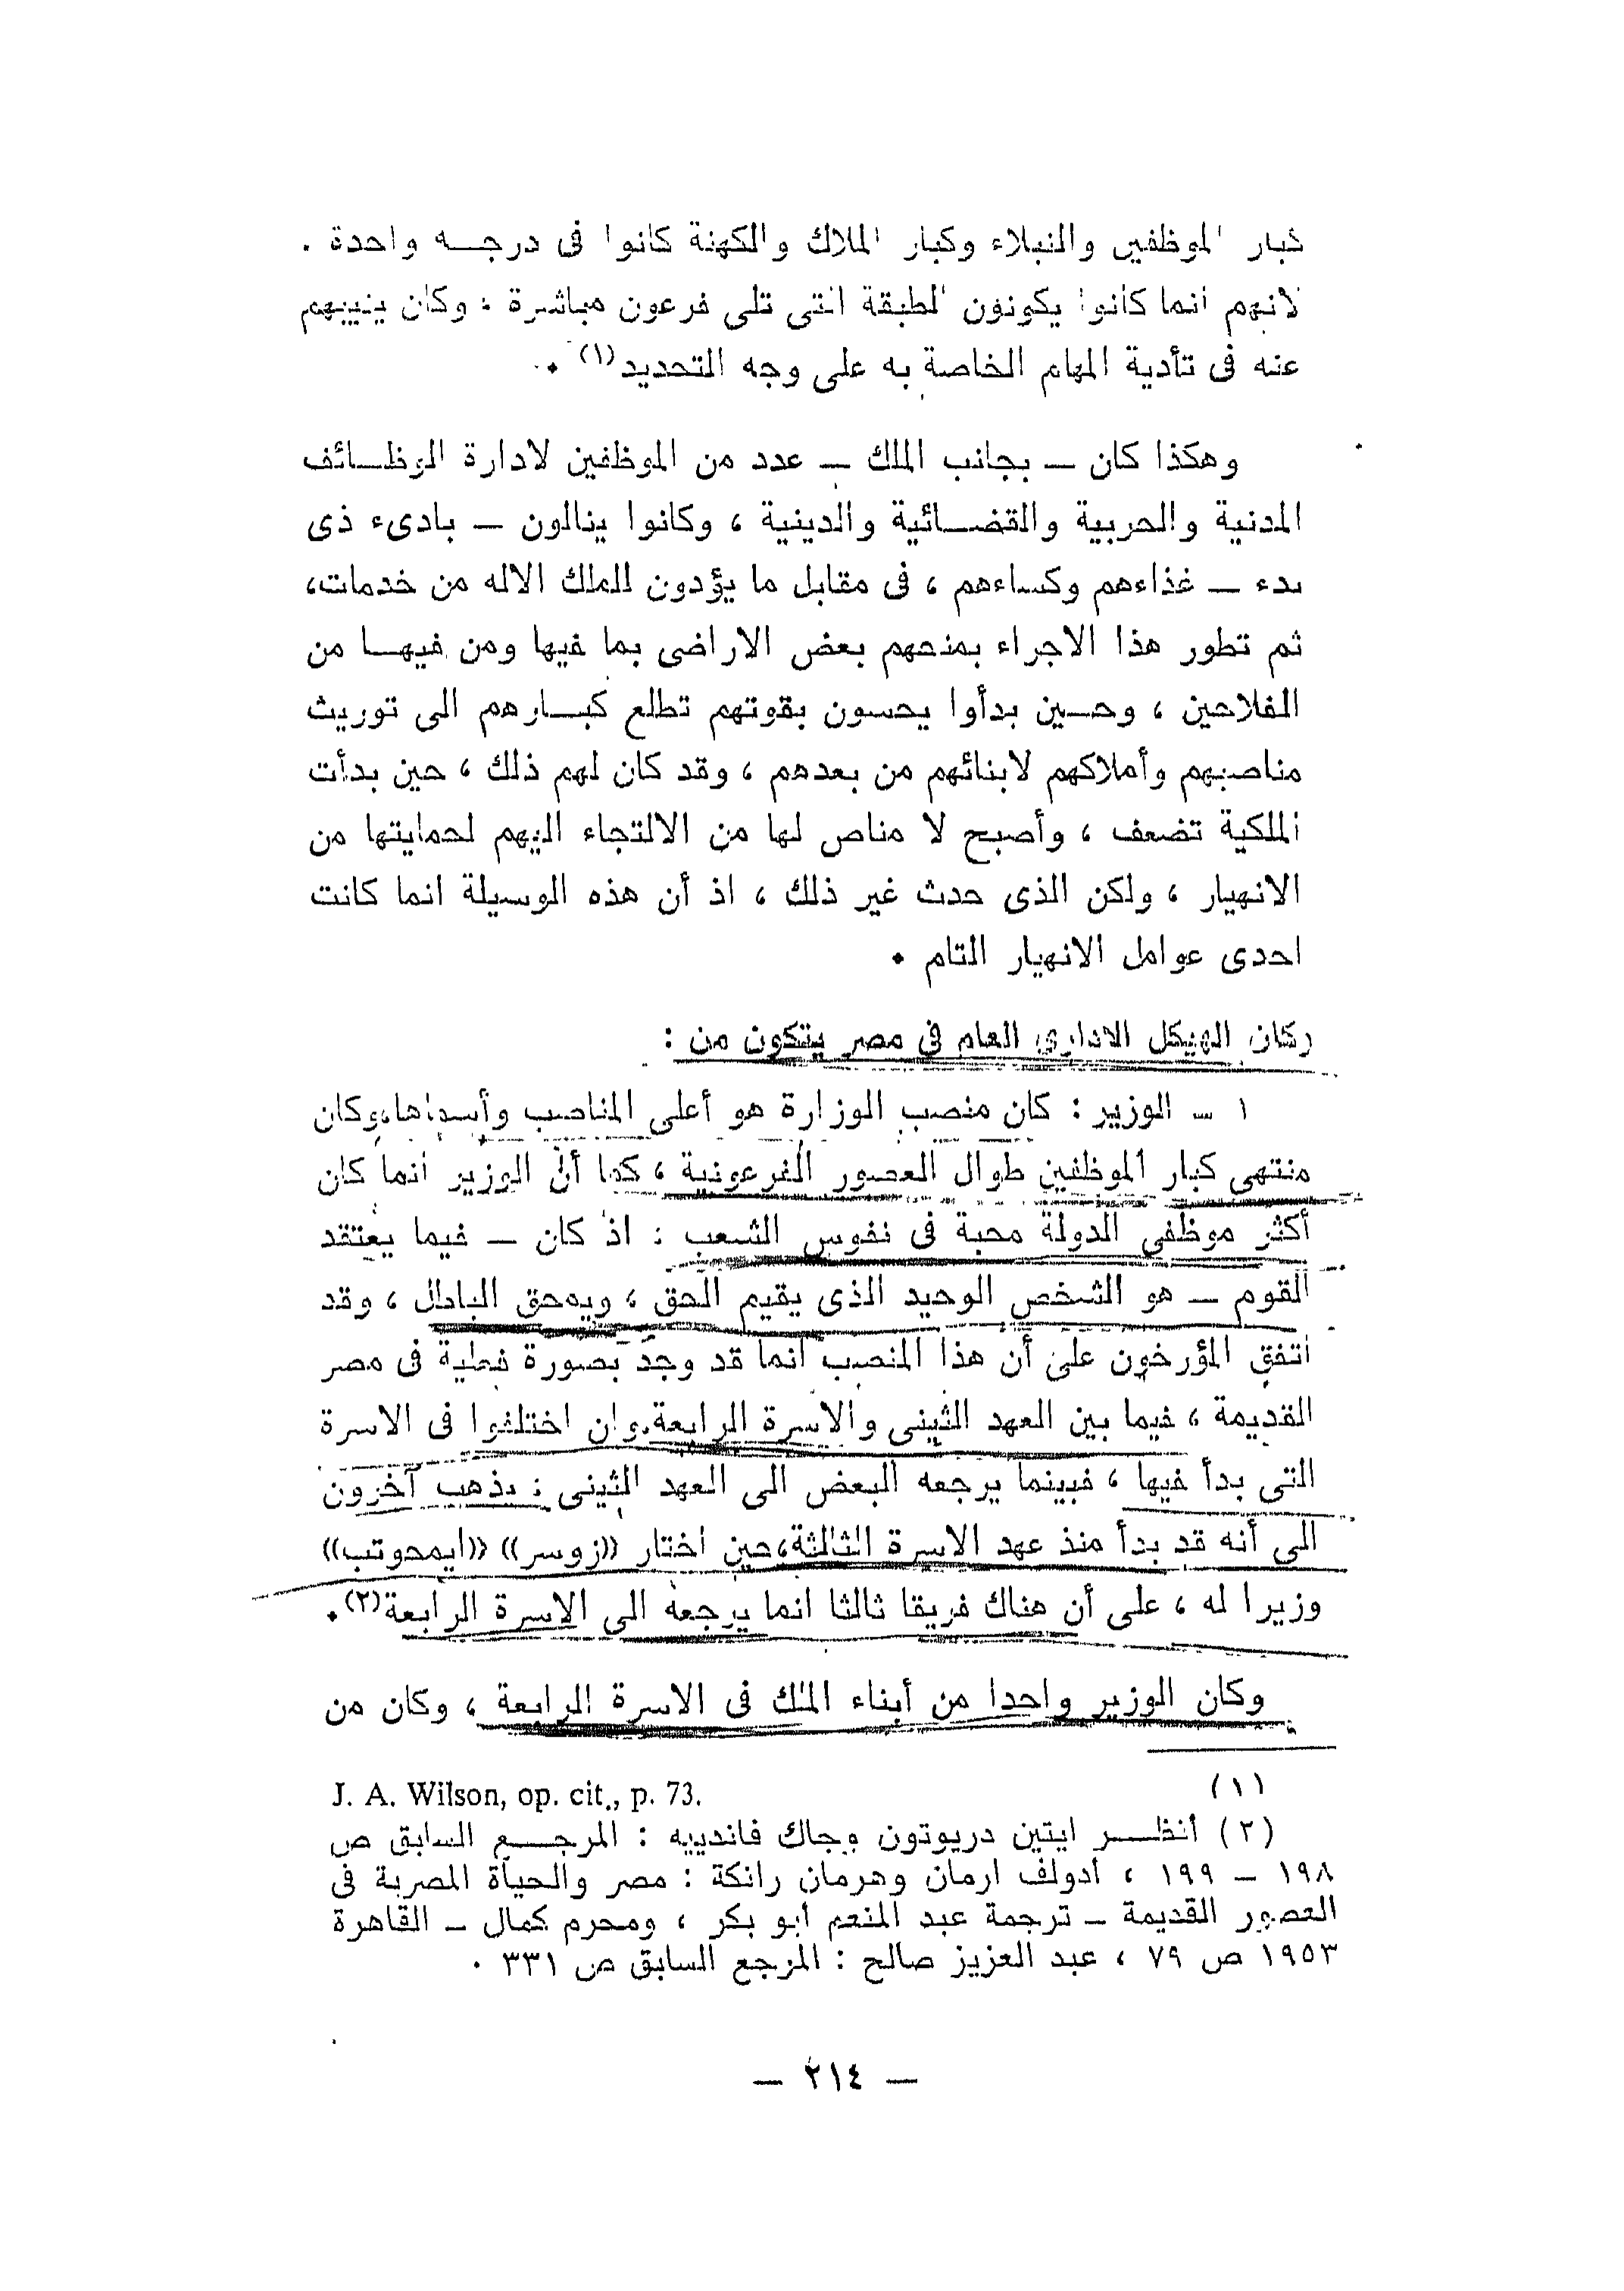 كبار الموظفين والنبلاء وكبار الملاك والكهنة كانوا فى درجـــه واحدة .
لانهم انما كانوا يكونون الطبقة التى تلى فرعون مباشرة ، وكان ينيبهم
عنه فى تأدية المهام الخاصة به على وجه التحديد(١) ٠
وهكذا كان — بجانب الملك — عدد من الموظفين لادارة الوظــائف
المدنية والحربية والقضــائية والدينية ، وكانوا ينالون — بادىء ذى
بدء — غذاءهم وكساءهم ، فى مقابل ما يؤدون للملك الاله من خدمات،
ثم تطور هذا الاجراء بمنحهم بعض الاراضى بما فيها ومن فيهــا من
الفلاحين ، وحــين بدأوا يحسون بقوتهم تطلع كبــارهم الى توريث
مناصبهم وأملاكهم لابنائهم من بعدهم ، وقد كان لهم ذلك ، حين بدأت
الملكية تضعف ، وأصبح لا مناص لها من الالتجاء اليهم لحمايتها من
الانهيار ، ولكن الذى حدث غير ذلك ، اذ أن هذه الوسيلة انما كانت
احدى عوامل الانهيار التام ٠
ركان الهيكل الادارى العام فى مصر يتكون من :
١ — الوزير : كان منصب الوزارة هو أعلى المناصب وأسماها،وكان
منتهى كبار الموظفين طوال العصور الفرعونية ، كما أن الوزير انما كان
أكثر موظفى الدولة محبة فى نفوس الشعب : اذ كان — فيما يعتقد
القوم — هو الشخص الوحيد الذى يقيم الحق ، ويمحق الباطل ، وقد
اتفق المؤرخون على أن هذا المنصب انما قد وجد بصورة فعلية فى مصر
القديمة ، فيما بين العهد الثينى والاسرة الرابعة،وان اختلفوا فى الاسرة
التى بدأ فيها ، فبينما يرجعه البعض الى العهد الثينى : يذهب آخرون
الى أنه قد بدأ منذ عهد الاسرة الثالثة،حين اختار ((زوسر)) ((ايمحوتب))
وزيرا له ، على أن هناك فريقا ثالثا انما يرجعه الى الاسرة الرابعة(٢)٠
وكان الوزير واحدا من أبناء الملك فى الاسرة الرابعة ، وكان من
(١) J. A. Wilson, op. cit., p. 73.
(٢) أنظــر ايتين دريوتون وجاك فاندييه : المرجــع السابق ص
١٩٨ — ١٩٩ ، أدولف ارمان وهرمان رانكة : مصر والحياة المصرية فى
العصور القديمة — ترجمة عبد المنعم أبو بكر ، ومحرم كمال — القاهرة
١٩٥٣ ص ٧٩ ، عبد العزيز صالح : المرجع السابق ص ٣٣١ ٠
— ٢١٤ —